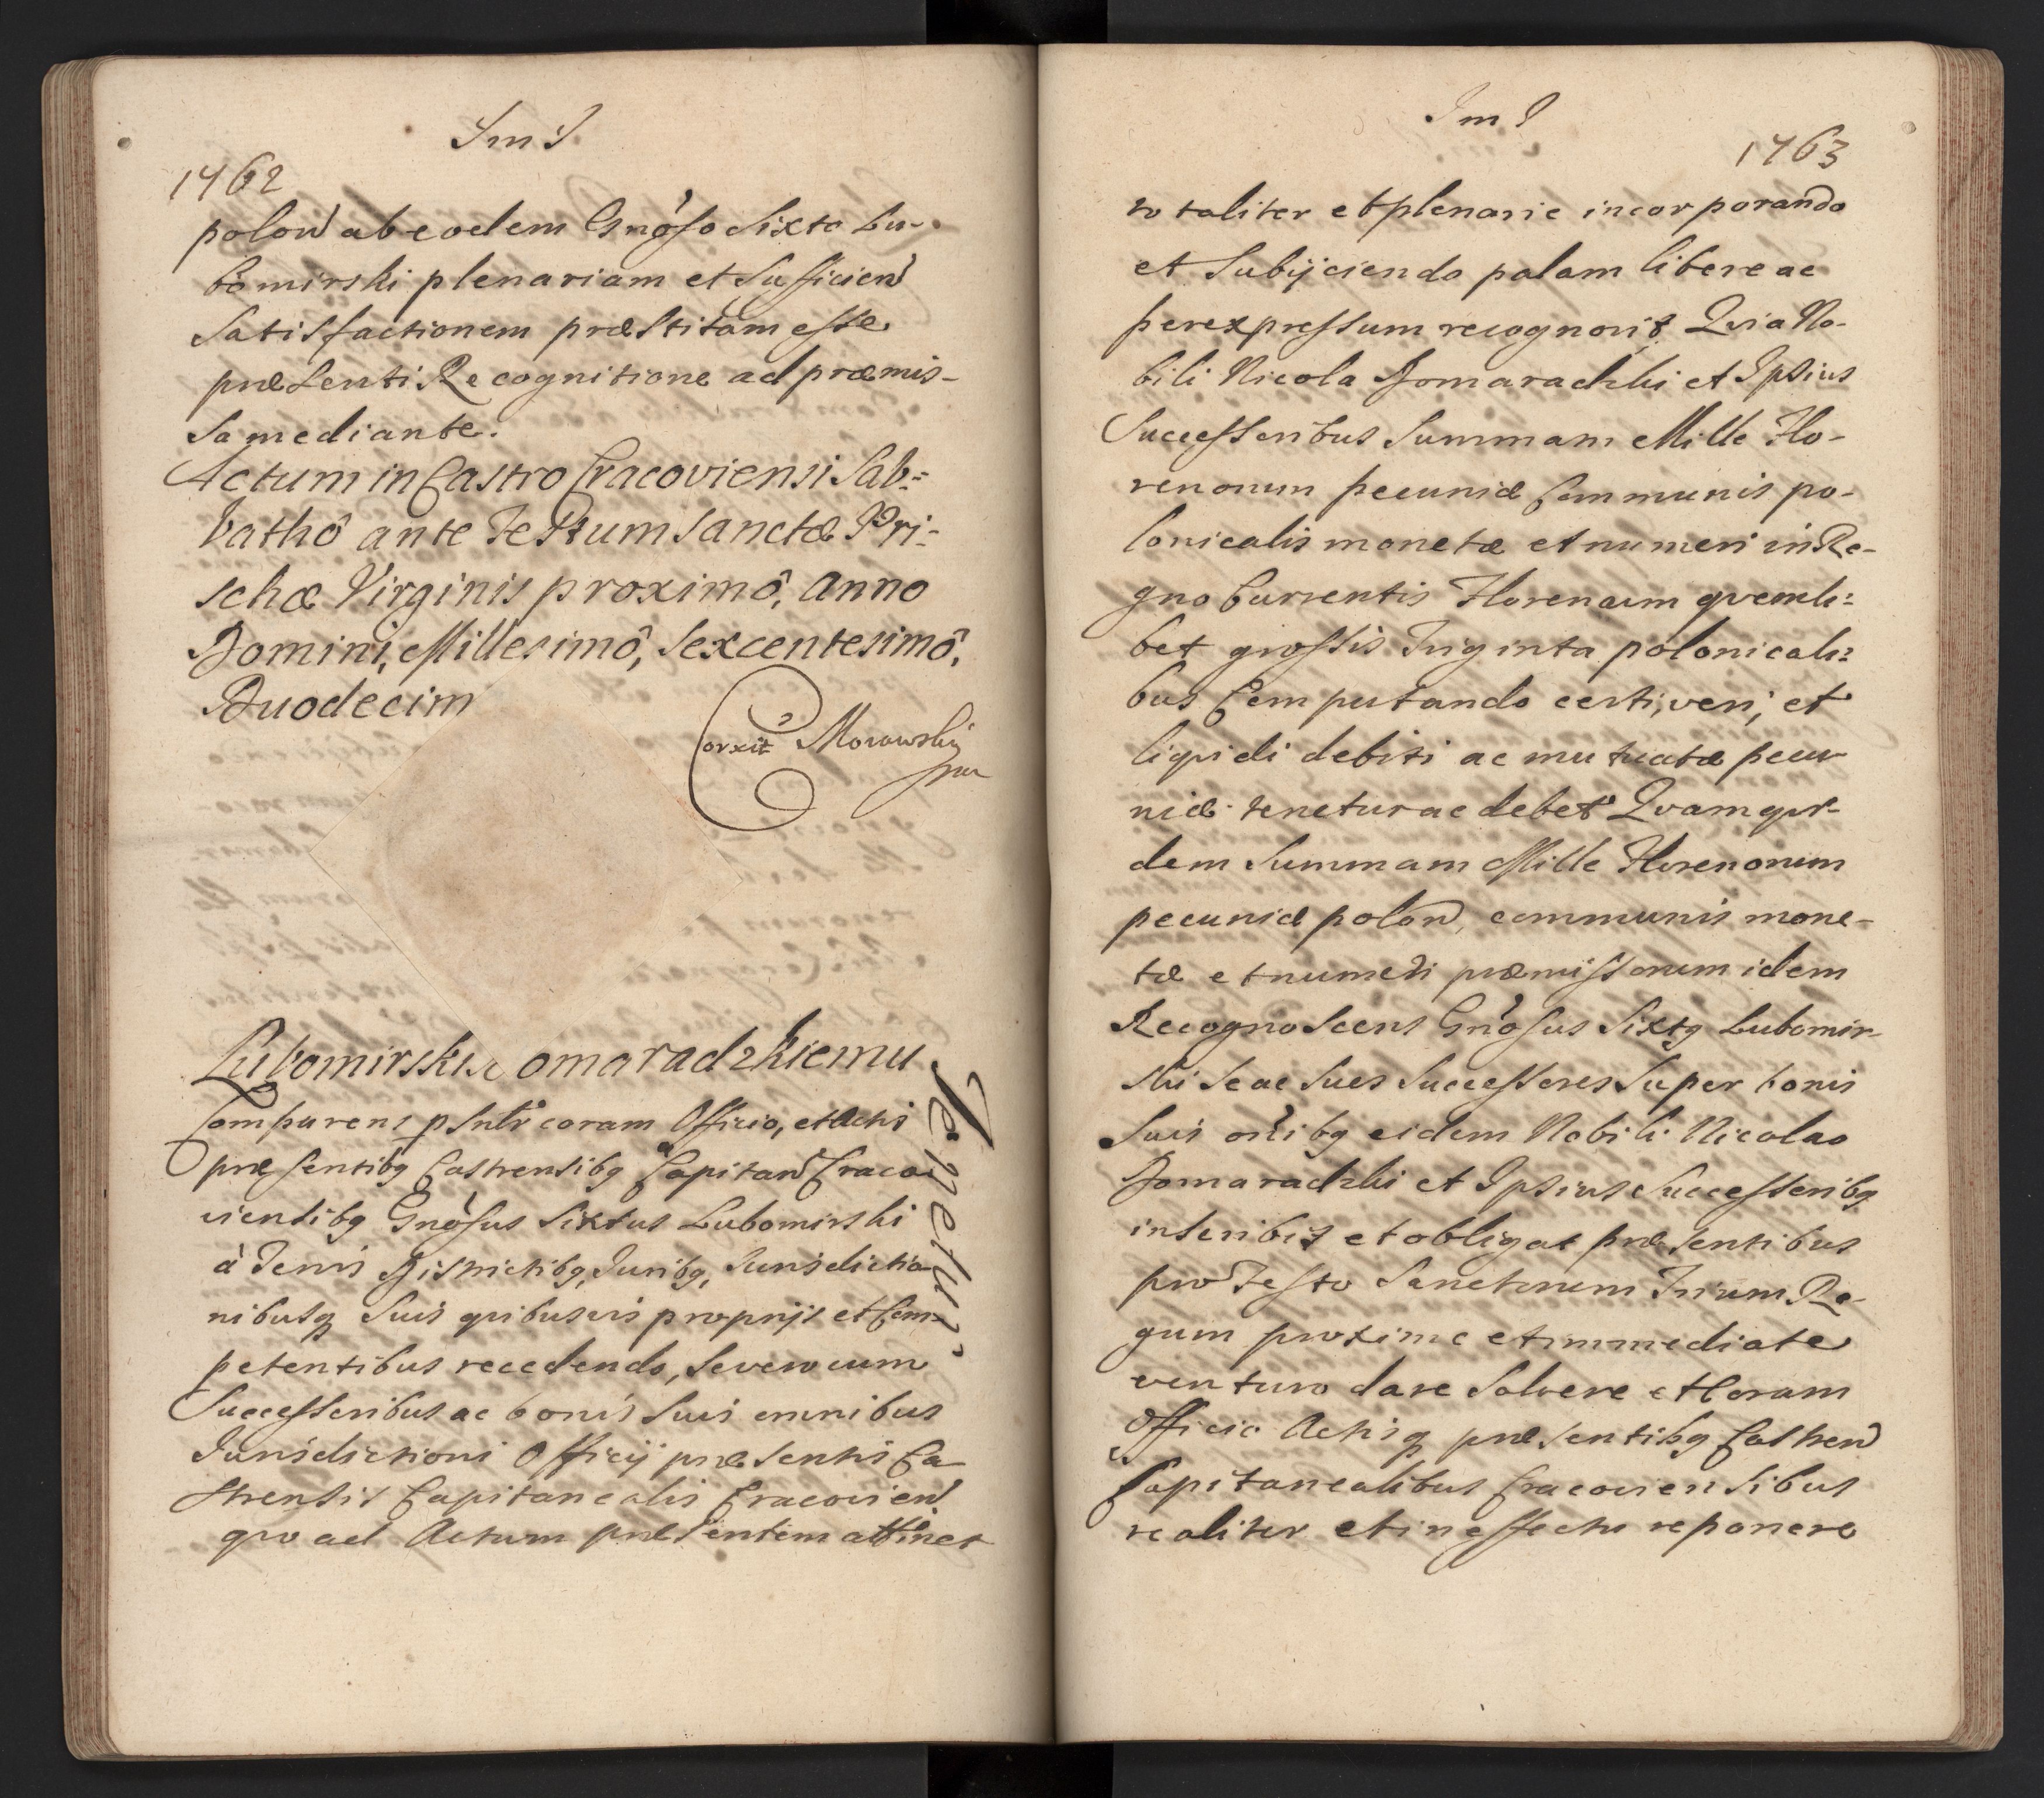 Im I
1762
polon̄ ab eodem Gnōso Sixto Lu-
bomirski plenariam et Sufficien̄
Satisfactionem præstitam esse
præsenti Recognitione ad præmis-
sa mediante.
Actum in Castro Cracoviensi Sab:
bathô ante Festum Sanctæ Pri:
schæ Virginis proximô, Anno
Domini, Millesimô, Sexcentesimô,
Duodecim
Corxit Morawskij
mp
Lubomirski omaradzkiemu
Tenetur
Comparens psntr coram Officio, et Actis
præsentibg Castrensibg Capitan̄ Craco
viensibg Gnōsus Sixtus Lubomirski
à Terris Districtibg, Juribg, Jurisdictio
nibusq Suis quibusvis proprijs et Com-
petentibus recedendo, Se vero cum
Successoribus ac bonis Suis omnibus
Jurisdictioni Officij præsentis Ca
strensis Capitanealis Cracovien̄
quo ad Actum præsentem attinet
Im I
1763
totaliter et plenarie incorporando
et Subijciendo palam libere ac
per expressum recognovit Quia No-
bili Nicola Domaradzki et Ipsius
Successoribus Summam Mille Flo-
renorum pecuniæ Communis po-
lonicalis monetæ et numeri in Re-
gno Currentis Florenum quemli:
bet grossis Triginta polonicali:
bus Computando certi, veri, et
liquidi debiti ac mutuatæ pecu
niæ tenetur ac debet Quam qui-
dem Summam Mille Florenorum
pecuniæ polon̄, communis mone-
tæ et numeri præmissorum idem
Recognoscens Gnōsus Sixtg Lubomir-
ski Se ac Suos Successores Super bonis
Suis on̄ibg eidem Nobili Nicolao
Domaradzki et Ipsius Successoribg
inscribit et obligat præsentibus
pro Festo Sanctorum Trium Re-
gum proxime et immediate
venturo dare Solvere et Coram
Officio Actisq præsentibg Castren̄
Capitanealibus Cracoviensibus
realiter et in effectu reponere